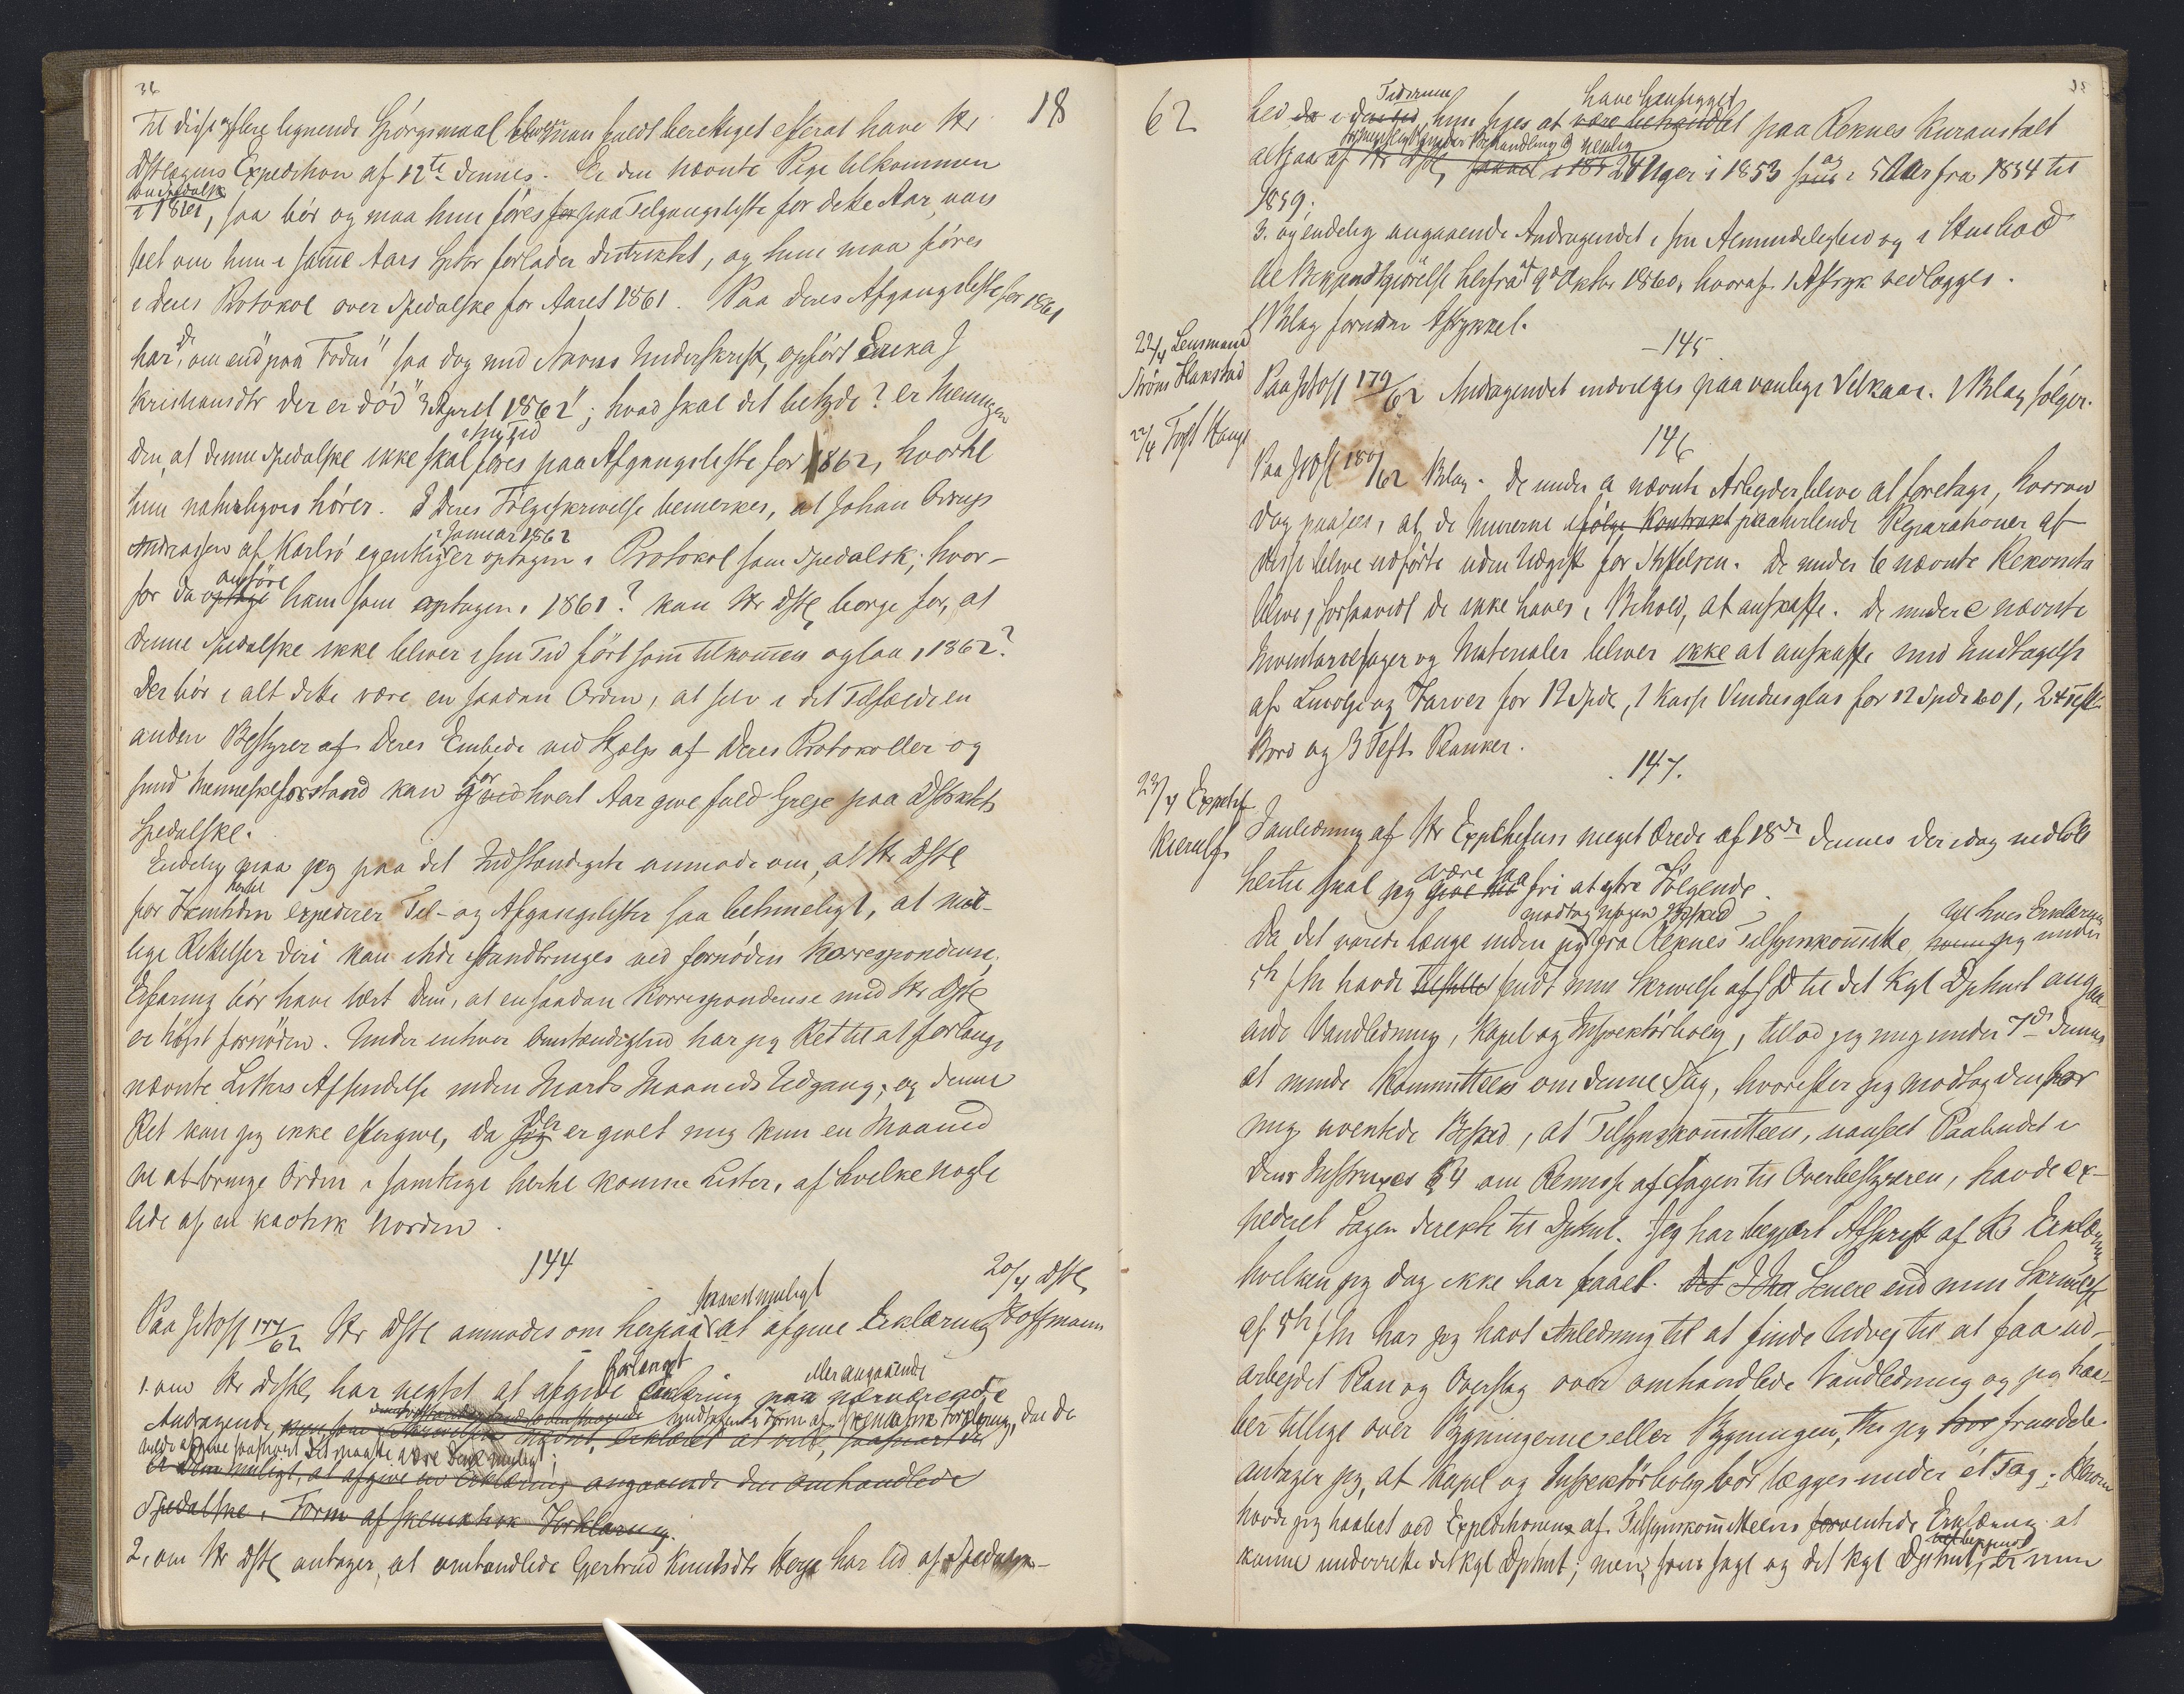 36
18
Til disse og flere lignende Spörgsmaal bliver man fuldt berettiget efterat have Hr
Dstlægens Expedition af 12te dennes. Er den nævnte Pige tilkommen
som spedalsk
i 1861, saa bör og maa hun föres for paa Tilgangsliste for dette Aar, uan
seet om hun i samme Aars Löb forlader Distriktet, og hun maa föres
i Deres Protokol over Spedalske for Aaret 1861. Paa Deres Afgangsliste for 1861
har De, om end "paa Fodus" saa dog med Navns Underskrift, opfört Erika J
Kristiansdtr der er död "3 April 1862"; hvad skal det betyde? er Meningen
i sin Tid
den, at denne Spedalske ikke skal föres paa Afgangsliste for 1862, hvortil
hun naturligvis hörer. I Deres Fölgeskrivelse bemerkes, at Johan
Andreassen af Karlsö egentlig er optagen i Protokol som spedalsk; hvor-
i Januar 1862
anföre
for da optage ham som optagen i 1861? kan Hr Dstl borge for, at
denne Spedalske ikke bliver i sin Tid fört som tilkommen ogsaa i 1862?
Der bör i alt dette være en saadan Orden, at selv i det Tilfælde en
anden Bestyrer af Deres Embede ved Hjælp af Deres Protokoller og
sund Menneskeforstand kan for hvert Aar give fuld Greje paa Distriktets
Spedalske.
Endelig maa jeg paa det Indstændigste anmode om, at Hr Dstl
hertil
for Fremtiden expederer Til- og Afgangslister saa betimeligt, at mu-
lige Rettelser deri kan istandbringes ved fornöden Korrespondense;
Erfaring bör have lært Dem, at en saadan Korrespondense med Hr Dstl
er höjst fornöden. Under enhver Omstændighed har jeg Ret til at forlange
nævnte Listers Afsendelse inden Marts Maaneds Udgang; og denne
Ret kan jeg ikke eftergive, da der er givet mig kun en Maaned
til at bringe Orden i samtlige hertil komne Lister, af hvilke nogle
lide af en kaotisk Uorden.
144
20/4 Dstl
Hoffmann
snarest muligt
Paa JNo 177/62 Hr Dstl anmodes om herpaa at afgive Erklæring
forlangt
eller angaaende
1. om Hr Dstl har negtet at afgive Erklæring paa nærværende
Andragende
er Dem muligt, at afgive en Erklæring angaaende den omhandlede
Spedalske i Form af skematisk Forklaring.
2, om Hr Dstl antager, at omhandlede Gjertrud Knudsdtr Berge har lid af Spedalsk-
62
Tidsrum
have henligget
hed da i den tid, hun siges at være behandlet paa Reknes Kuranstalt
altsaa 24 Uger i 1853 og i 5 Aar fra 1854 til
1859;
3. og endelig angaaende Andragendet i sin Almindelighed og i Henhold
til Bekjendtgjörelse herfra af 9de Oktbr 1860, hvoraf 1 Aftryk vedlægges.
1 Bilag foruden Aftrykket.
145
22/4 Lensmand
Ström Hakstad
Paa JNo 179/62 Andragendet indvilges paa vanlige Vilkaar. 1 Bilag fölger.
146
22/4 Fogt Hauge
Paa JNo 180/62 Bilag. De under a nævnte Arbejder blive at foretage, hvorved
dog paasees, at de Murerne ifölge Kontrakt paahvilende Reparationer af
disse blive udförte uden Udgift for Stiftelsen. De under b nævnte Rekvisita
blive, forsaavidt de ikke haves i Behold, at anskaffe. De under c nævnte
Inventariesager og Materialer bliver ikke at anskaffe med Undtagelse
af Linolje og Farver for 12 Spd, 1 Kasse Vinduesglas for 12 Spd 60 s, 2 Tylft
Bord og 3 Tylft Planker.
147.
23/4 Expchef
Kierulf
I anledning af Hr Expchefens meget ærede af 18de dennes der idag indlöb
være saa
hertil skal jeg give mig fri at ytre Fölgende.
modtog nogen Besked
til hvis Erklæring
Da det varede længe inden jeg fra Reknes Tilsynskommitte hvem jeg under
5te f M havde tilstillet sendt min Skrivelse af s D til det Kgl Dptmt angaa-
ende Vandledning, Kapel og Inspektörbolig, tillod jeg mig under 7de dennes
at minde Kommitteen om denne Sag, hvorefter jeg modtog den for
mig uventede Besked, at Tilsynskommitteen, uanseet Paabudet i
dens Instruxes § 4 om Remisse af Sagen til Overbestyreren, havde ex-
pederet Sagen direkte til Dptmt. Jeg har begjært Afskrift af Ks Erklæring
hvilken jeg dog ikke har faaet. Senere end min Skrivelse
af 5te f M har jeg havt Anledning til at finde Udvej til at faa ud-
arbejdet Plan og Overslag over omhandlede Vandledning og jeg haa-
ber tillige over Bygningerne eller Bygningen, thi jeg fremdeles
antager jeg, at Kapel og Inspektörbolig bör lægges under ét Tag; Herom
havde jeg haabet ved Expeditionen af Tilsynskommitteens forventede Erklæring at
kunne underrette det kgl Dptmt; men, som sagt og det kgl Dptmt, er min